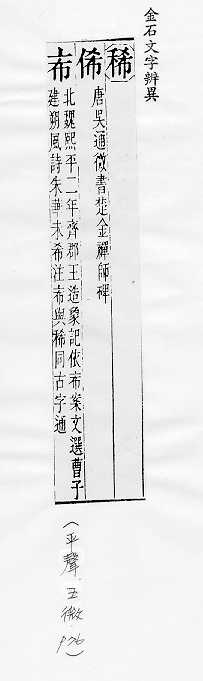 金石文字辨異
稀
俙 唐吳通微書楚金禪師碑
布 北魏熙平二年齊郡王造象記依布案文選曹子
建朔風詩朱華未希注布與稀同古字通
（平聲 五微 P76）